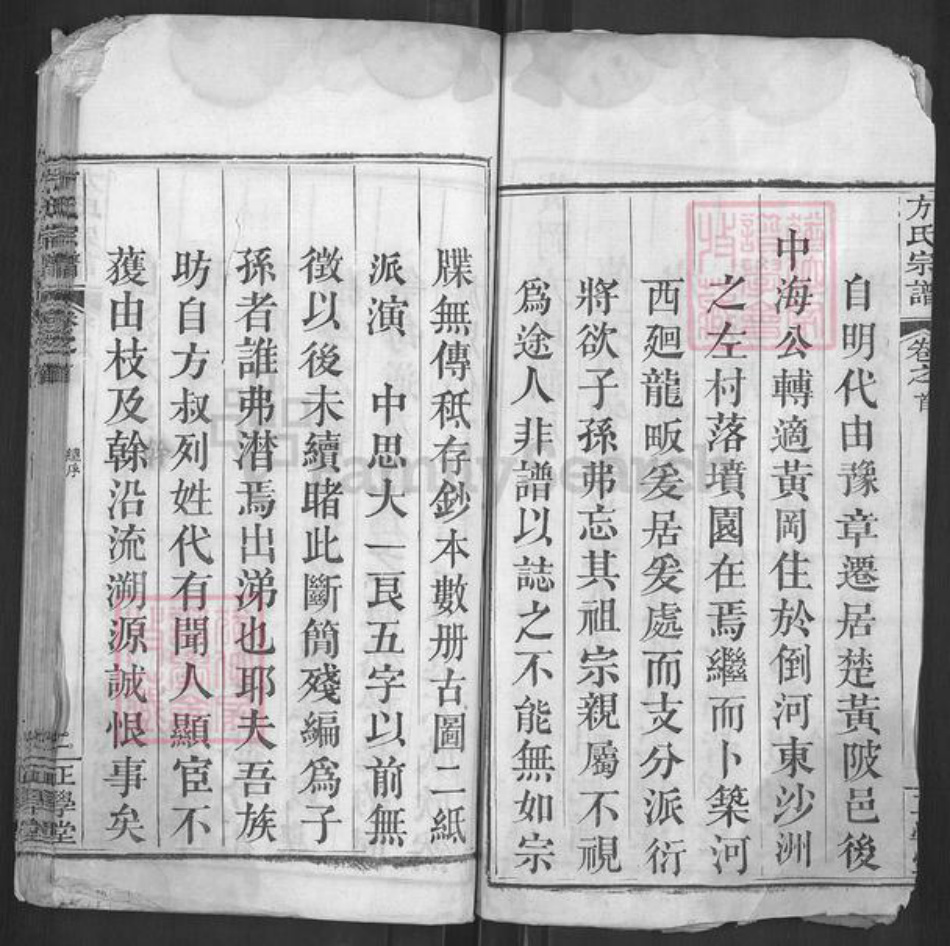 方氏宗譜
卷之首
自明代由豫章遷居楚黃陂邑後
中海公轉適黃岡住於倒河東沙洲
之左村落墳園在焉繼而卜築河
西廻龍畈爰居爰處而支分派衍
將欲子孫弗忘其祖宗親屬不視
爲途人非譜以誌之不能無如宗
牒無傳秪存鈔本數册古圖二紙
派演 中思大一艮五字以前無
徵以後未續睹此斷簡殘編爲子
孫者誰弗潸焉出涕也耶夫吾族
昉自方叔列姓代有聞人顯宦不
蒦由枝及榦沿流溯源誠恨事矣
續序
二
正學堂
FamilySearch